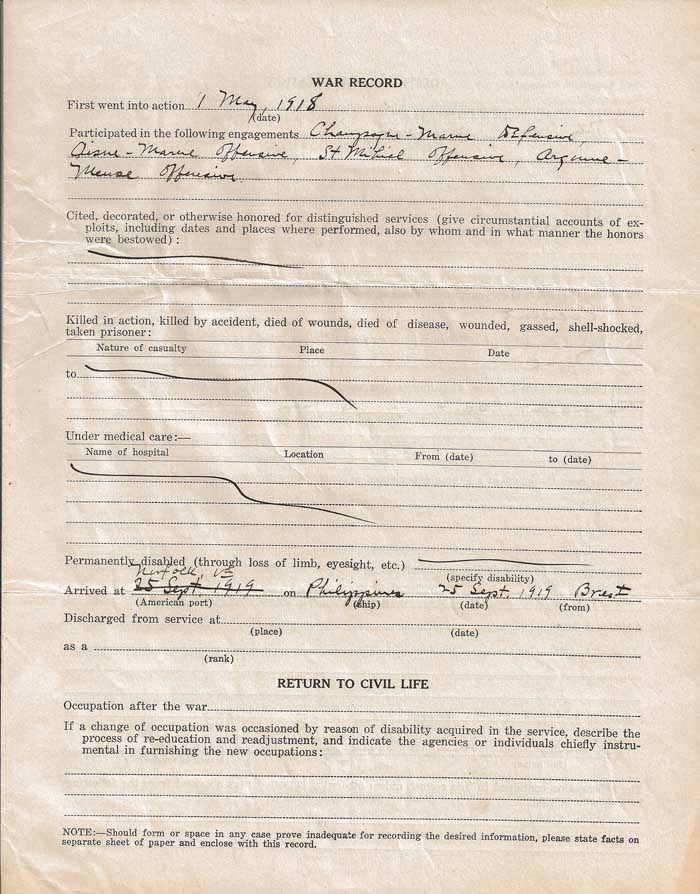 WAR RECORD
First went into action 1 May, 1918
(date)
Participated in the following engagements Champagne-Marne Defensive,
Aisne-Marne Offensive, St Mihiel Offensive, Argonne-
Meuse Offensive
Cited, decorated, or otherwise honored for distinguished services (give circumstantial accounts of ex-
ploits, including dates and places where performed, also by whom and in what manner the honors
were bestowed) :
Killed in action, killed by accident, died of wounds, died of disease, wounded, gassed, shell-shocked,
taken prisoner:
Nature of casualty Place Date
to
Under medical care:—
Name of hospital Location From (date) to (date)
Permanently disabled (through loss of limb, eyesight, etc.)
(specify disability)
Norfolk, Va
Arrived at 25 Sept. 1919 on Philippines 25 Sept. 1919 Brest
(American port) (ship) (date) (from)
Discharged from service at
(place) (date)
as a
(rank)
RETURN TO CIVIL LIFE
Occupation after the war
If a change of occupation was occasioned by reason of disability acquired in the service, describe the
process of re-education and readjustment, and indicate the agencies or individuals chiefly instru-
mental in furnishing the new occupations:
NOTE:—Should form or space in any case prove inadequate for recording the desired information, please state facts on
separate sheet of paper and enclose with this record.